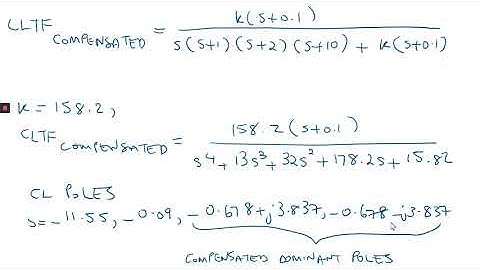 CLTF COMPENSATED = K(S+0.1) / S(S+1)(S+2)(S+10) + K(S+0.1)
K = 158.2,
CLTF COMPENSATED = 158.2(S+0.1) / S^4+13S^3+32S^2+178.2S+15.82
CL POLES
S=-11.55, -0.09, -0.678+j3.837, -0.678-j3.837
COMPENSATED DOMINANT POLES